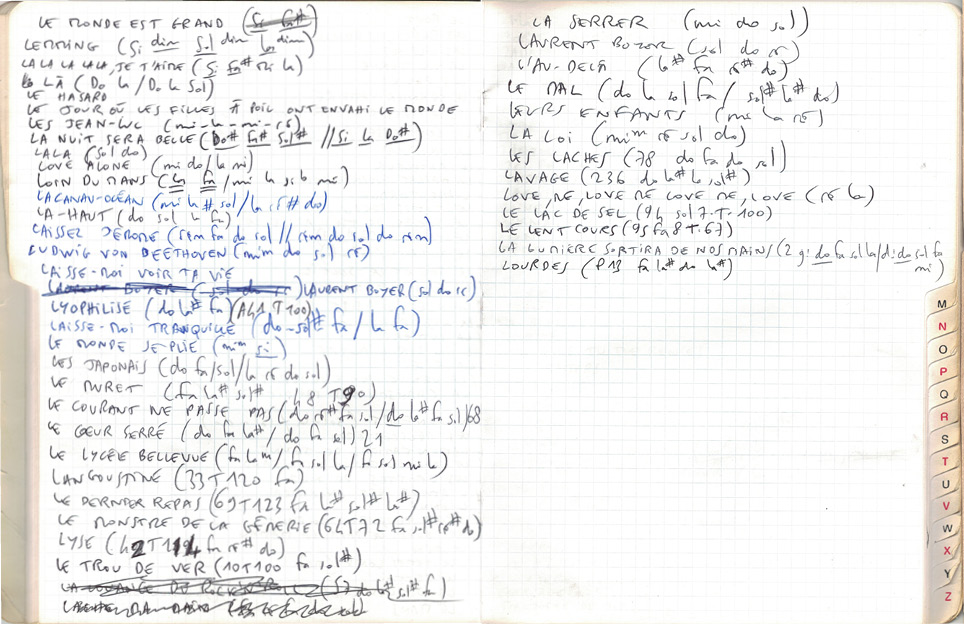 LE MONDE EST GRAND (Si fa#)
LEMMING (Si dim Sol dim
LA LA LA LA, JE T'AIME (Si fa# mi la)
LÀ (Do la / Do la Sol)
LE HASARD
LE JOUR OÙ LES FILLES À POIL ONT ENVAHI LE MONDE
LES JEAN-LUC (mi-la-mi-ré)
LA NUIT SERA BELLE (Do# fa# Sol# // Si la Do#)
LALA (Sol do)
LOVE ALONE (mi do / la mi)
LOIN DU MANS (la fa / mi la sib mi)
LACANAU-OCÉAN (mi la# sol / la ré# do)
LA-HAUT (do sol la fa)
LAISSEZ JEROME (rém fa do sol // rém do sol do rém)
LUDWIG VON BEETHOVEN (mim do sol ré)
LAISSE-MOI VOIR TA VIE
LAURENT BOYER (sol do ré) LAURENT BOYER (sol do ré)
LYOPHILISÉ (do la# fa) (A41 T100)
LAISSE-MOI TRANQUILLE (do-sol# fa / la fa)
LE MONDE SE PLIE (mim si)
LES JAPONAIS (do fa/sol/la ré do sol)
LE MURET (fa la# sol# 48 T90)
LE COURANT NE PASSE PAS (do ré# fa sol / do la# fa sol) 68
LE CŒUR SERRÉ (do fa la# / do fa sol) 21
LE LYCÉE BELLEVUE (fa lam / fa sol la / fa sol mi la)
LANGOUSTINE (33T120 fa)
LE DERNIER REPAS (69T123 fa la# sol# la#)
LE MONSTRE DE LA GÉMERIE (64T72 fa sol# ré# do)
LYSE (42T114 fa ré# do)
LE TROU DE VER (10T100 fa sol#)
LA LOUANGE DU ROCK N ROLL do la# sol# fa)
LA SERRER (mi do sol)
LAURENT BOYER (sol do ré)
L'AU-DELÀ (la# fa ré# do)
LE MAL (do la sol fa / sol# la# do)
LEURS ENFANTS (mi la ré)
LA LOI (mim ré sol do)
LES LACHES (78 do fa do sol)
LAVAGE (236 do la# la sol#)
LOVE ME, LOVE ME LOVE ME, LOVE (ré la)
LE LAC DE SEL (94 sol7-T-100)
LE LENT COURS (95 fa 8 T-67)
LA LUMIÈRE SORTIRA DE NOS MAINS (2 g: do fa sol la/d: do sol fa mi)
LOURDES (P13 fa la# do la#)
M
N
O
P
Q
R
S
T
U
V
W
X
Y
Z